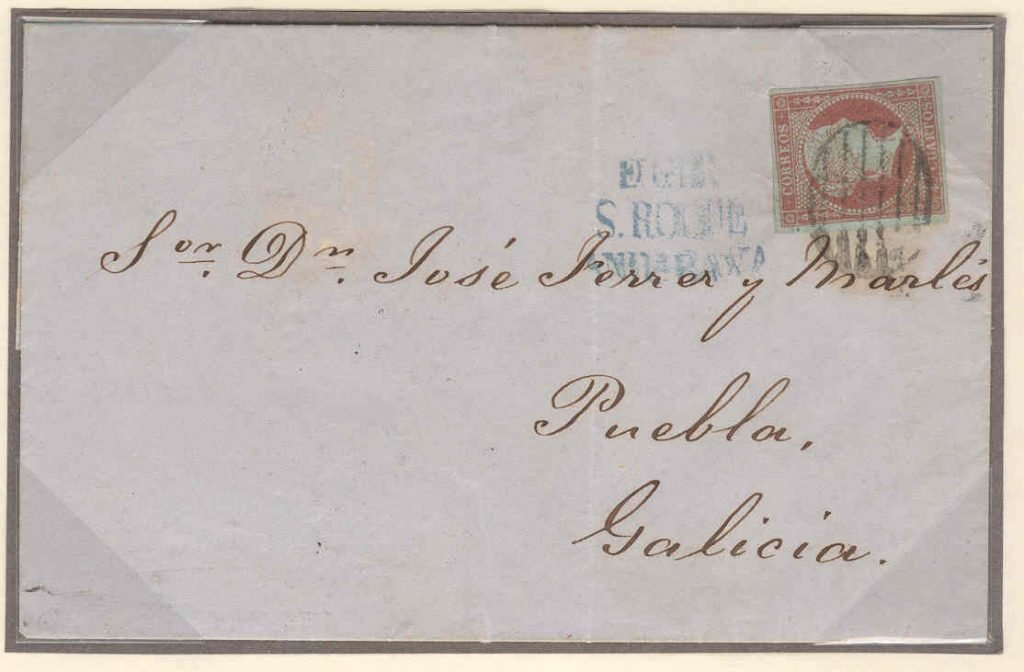 CORREOS
S. ROQUE
ANDᴬ BAXA
Sor. Dn. José Ferrer y Marlés
Puebla,
Galicia.